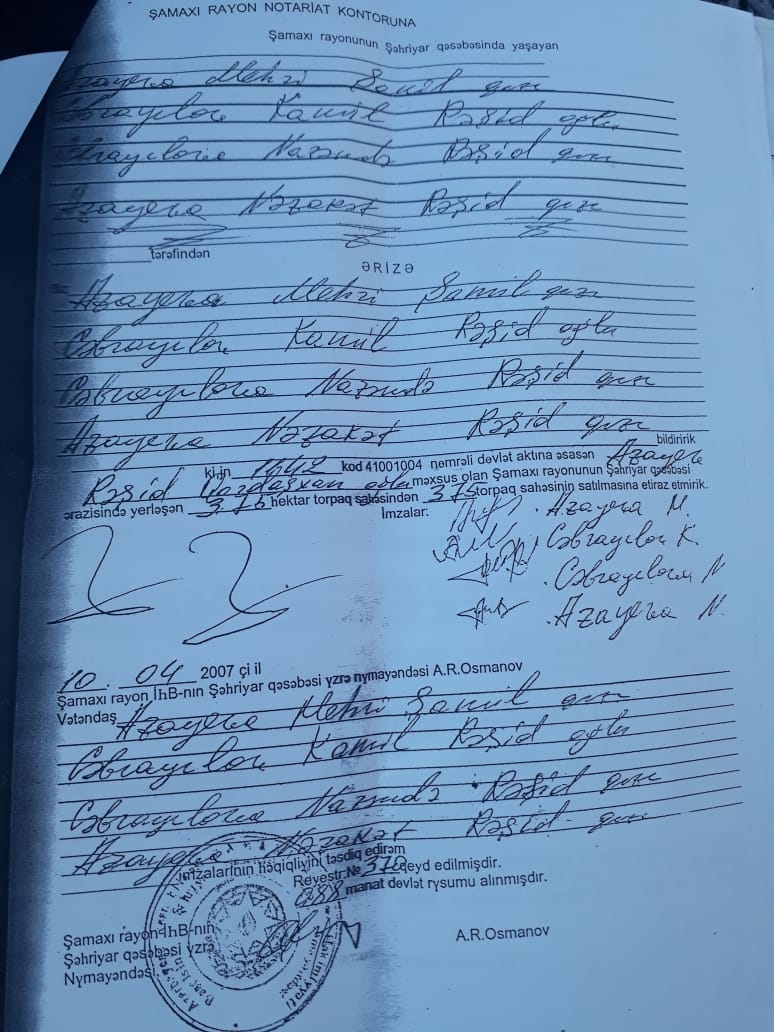 ŞAMAXI RAYON NOTARİAT KONTORUNA
Şamaxı rayonunun Şəhriyar qəsəbəsində yaşayan
Azayeva Mehri Şamil qızı
Cəbrayılov Kamil Rəşid oğlu
Cəbrayılova Nazəndə Rəşid qızı
Azayeva Nəzakət Rəşid qızı
tərəfindən
ƏRİZƏ
Azayeva Mehri Şamil qızı
Cəbrayılov Kamil Rəşid oğlu
Cəbrayılova Nazəndə Rəşid qızı
Azayeva Nəzakət Rəşid qızı
bildiririk
ki,in 1648 kod 41001004 nəmrəli dəvlət aktına əsasən Azayev
Rəşid oğluna məxsus olan Şamaxı rayonunun Şəhriyar qəsəbəsi
ərazisində yerləşən 3,75 hektar torpaq sahəsindən 3,75 torpaq sahəsinin satılmasına etiraz etmirik.
İmzalar: Azayeva M.
Cəbrayılov K.
Cəbrayılova N
Azayeva N.
10. 04 2007 çi il
Şamaxı rayon İhB-nın Şəhriyar qəsəbəsi yzrə nymayəndəsi A.R.Osmanov
Vətəndaş Azayeva Mehri Şamil qızı
Cəbrayılov Kamil Rəşid oğlu
Cəbrayılova Nazəndə Rəşid qızı
Azayeva Nəzakət Rəşid qızı
imzalarının həqiqliyini təsdiq edirəm
Revestr.№ 378 qeyd edilmişdir.
manat dəvlət rysumu alınmışdır.
Şamaxı rayon İhB-nın
Şəhriyar qəsəbəsi yzrə
Nymayəndəsi
A.R.Osmanov